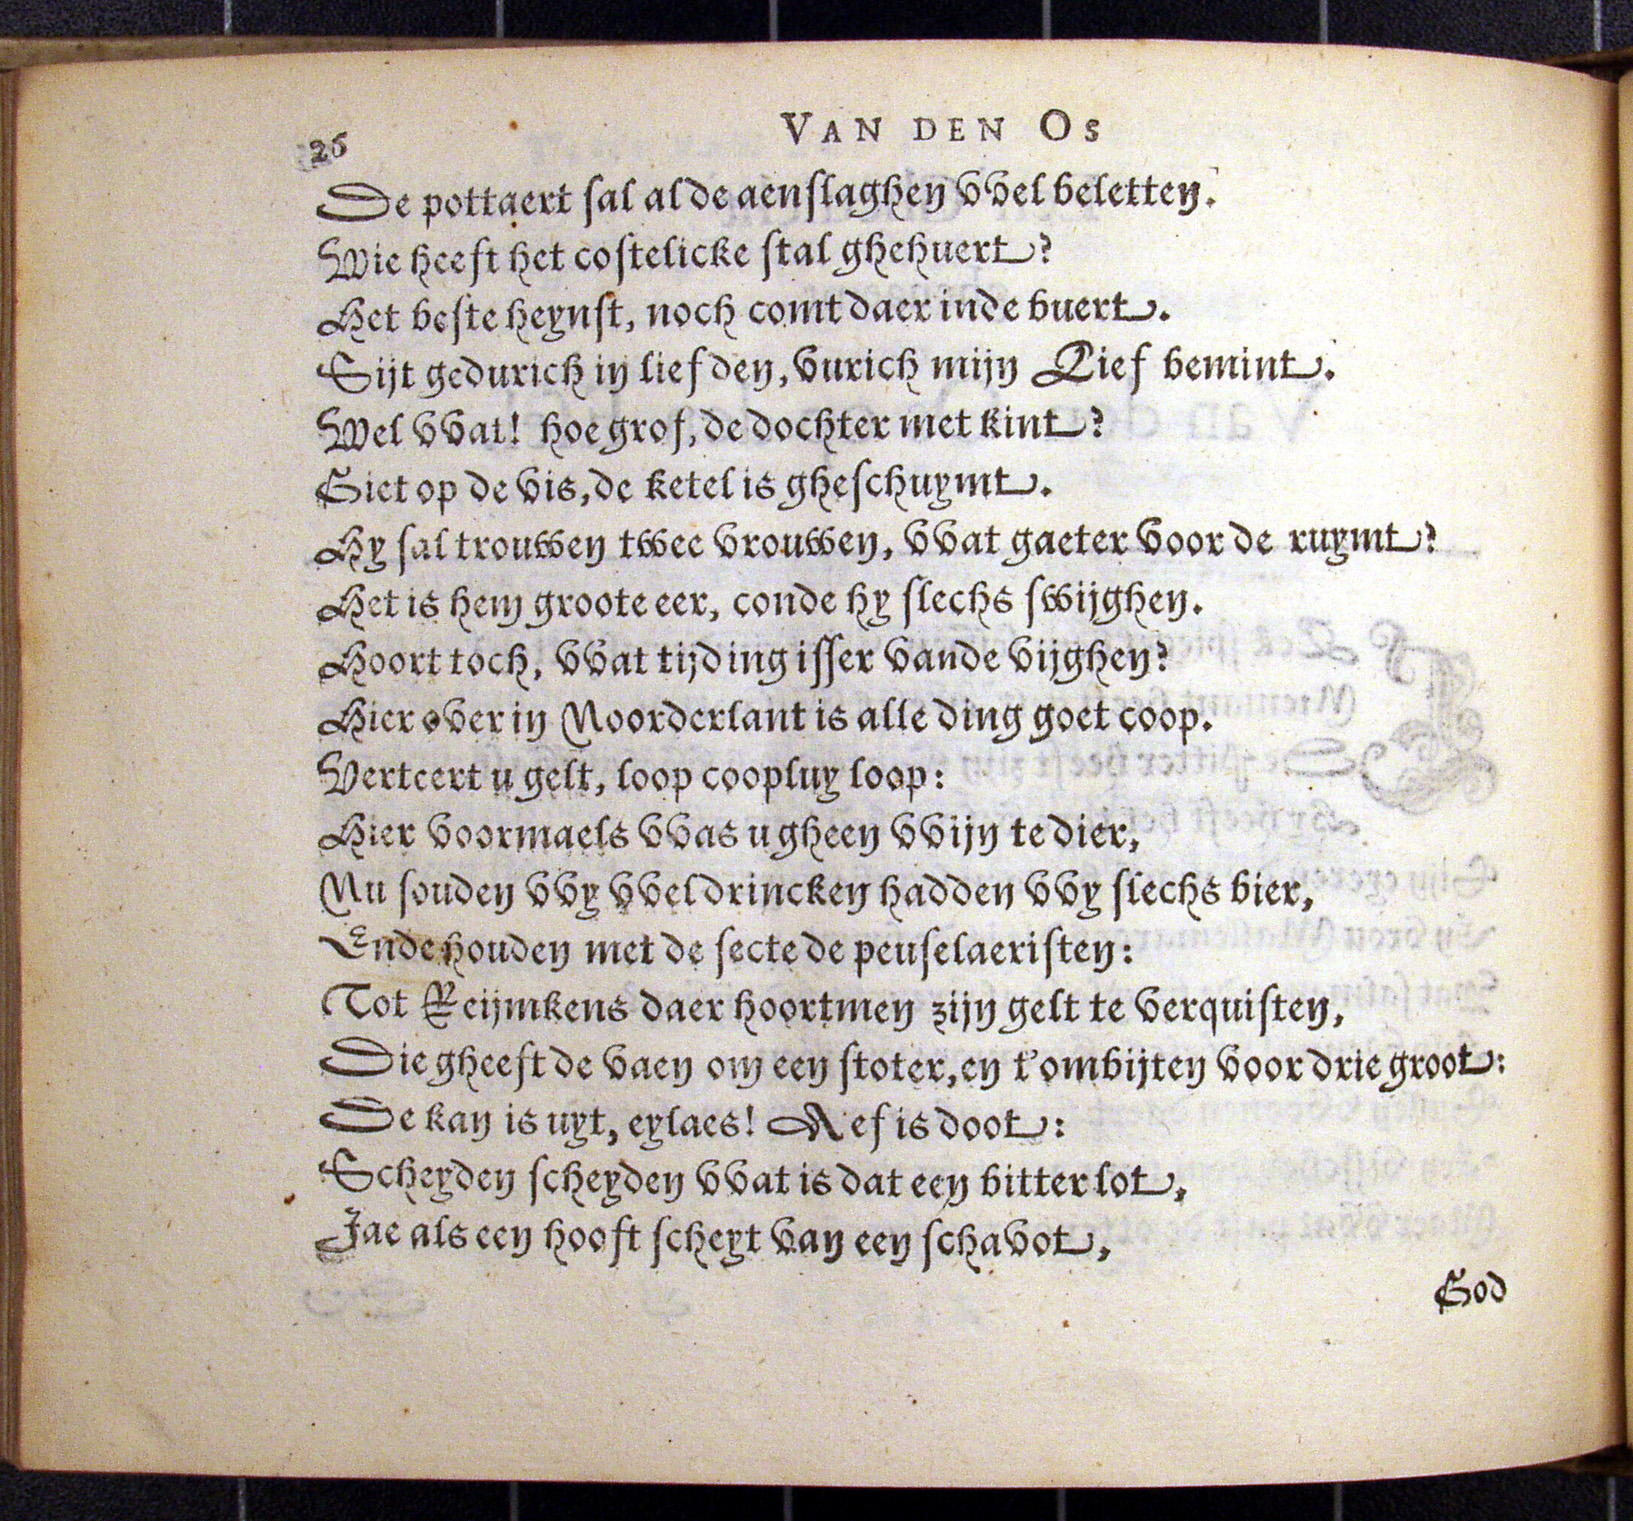 26
VAN DEN OS
De pottaert sal al de aenslaghen vvel beletten.
Wie heeft het costelicke stal ghehuert?
Het beste heynst, noch comt daer inde buert.
Sijt gedurich in liefden, vurich mijn Lief bemint.
Wel vvat! hoe grof, de dochter met kint?
Siet op de vis, de ketel is gheschuymt.
Hy sal trouwen twee vrouwen, vvat gaeter voor de ruymt?
Het is hem groote eer, conde hy slechs swijghen.
Hoort toch, vvat tijding isser vande vijghen?
Hier over in Noorderlant is alle ding goet coop.
Verteert u gelt, loop coopluy loop:
Hier voormaels vvas u gheen vvijn te dier,
Nu souden vvy vvel drincken hadden vvy slechs bier,
Ende houden met de secte de peuselaeristen:
Tot Reijmkens daer hoortmen zijn gelt te verquisten,
Die gheeft de vaen om een stoter, en t'ombijten voor drie groot:
De kan is uyt, eylaes! Aef is doot:
Scheyden scheyden vvat is dat een bitter lot,
Jae als een hooft scheyt van een schavot,
God